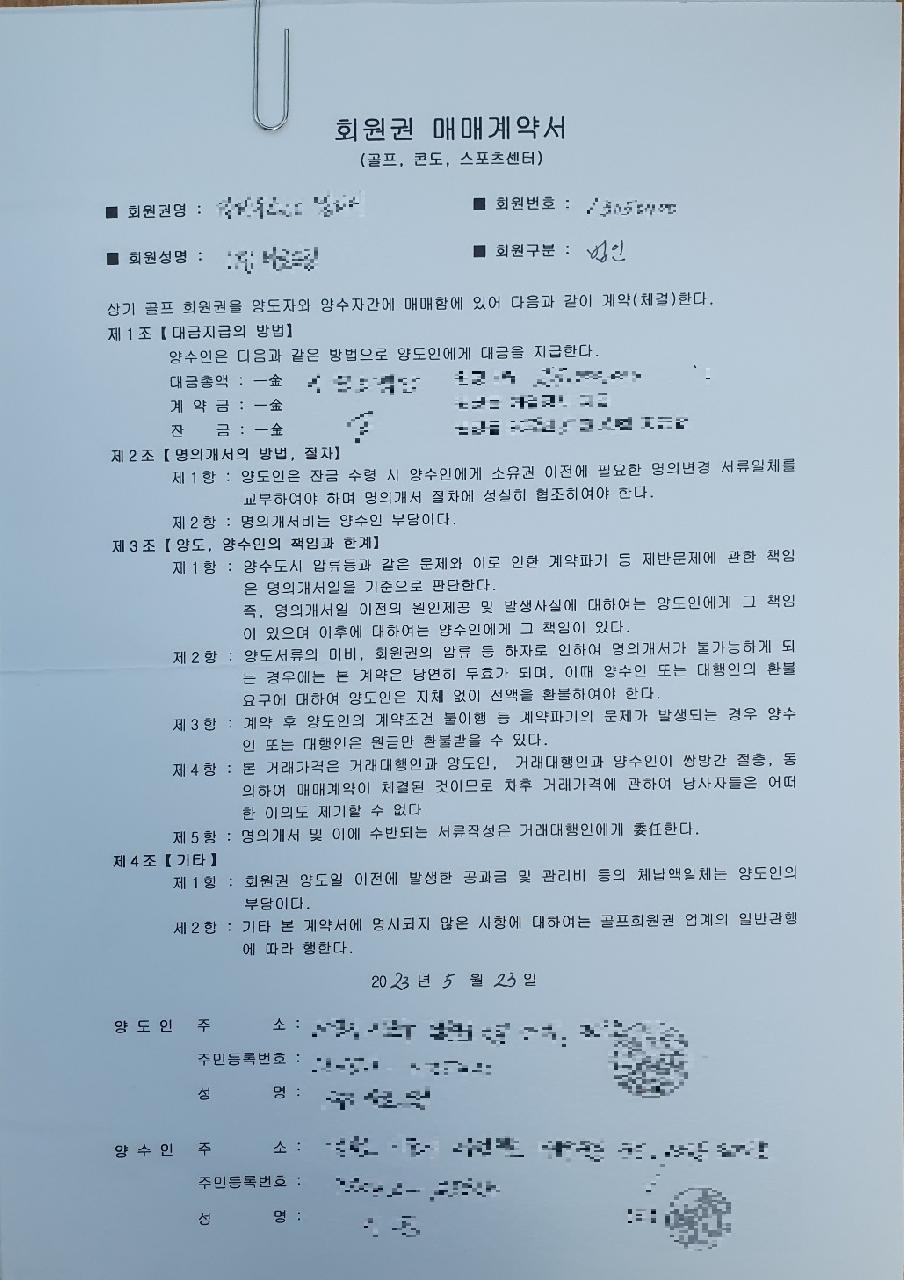 회원권 매매계약서
(골프, 콘도, 스포츠센터)
■ 회원권명 :
■ 회원번호 :
■ 회원성명 :
■ 회원구분 : 법인
상기 골프 회원권을 양도자와 양수자간에 매매함에 있어 다음과 같이 계약(체결)한다.
제1조【대금지급의 방법】
양수인은 다음과 같은 방법으로 양도인에게 대금을 지급한다.
대금총액 : 一金
계 약 금 : 一金
잔 금 : 一金
제2조【명의개서의 방법, 절차】
제1항 : 양도인은 잔금 수령 시 양수인에게 소유권 이전에 필요한 명의변경 서류일체를
교부하여야 하며 명의개서 절차에 성실히 협조하여야 한다.
제2항 : 명의개서비는 양수인 부담이다.
제3조【양도, 양수인의 책임과 한계】
제1항 : 양수도시 압류등과 같은 문제와 이로 인한 계약파기 등 제반문제에 관한 책임
은 명의개서일을 기준으로 판단한다.
즉, 명의개서일 이전의 원인제공 및 발생사실에 대하여는 양도인에게 그 책임
이 있으며 이후에 대하여는 양수인에게 그 책임이 있다.
제2항 : 양도서류의 미비, 회원권의 압류 등 하자로 인하여 명의개서가 불가능하게 되
는 경우에는 본 계약은 당연히 무효가 되며, 이때 양수인 또는 대행인의 환불
요구에 대하여 양도인은 지체 없이 전액을 환불하여야 한다.
제3항 : 계약 후 양도인의 계약조건 불이행 등 계약파기의 문제가 발생되는 경우 양수
인 또는 대행인은 원금만 환불받을 수 있다.
제4항 : 본 거래가격은 거래대행인과 양도인, 거래대행인과 양수인이 쌍방간 절충, 동
의하여 매매계약이 체결된 것이므로 차후 거래가격에 관하여 당사자들은 어떠
한 이의도 제기할 수 없다
제5항 : 명의개서 및 이에 수반되는 서류작성은 거래대행인에게 委任한다.
제4조【기타】
제1항 : 회원권 양도일 이전에 발생한 공과금 및 관리비 등의 체납액일체는 양도인의
부담이다.
제2항 : 기타 본 계약서에 명시되지 않은 사항에 대하여는 골프회원권 업계의 일반관행
에 따라 행한다.
2023년 5월 23일
양도인 주 소 :
주민등록번호 :
성 명 :
양수인 주 소 :
주민등록번호 :
성 명 :